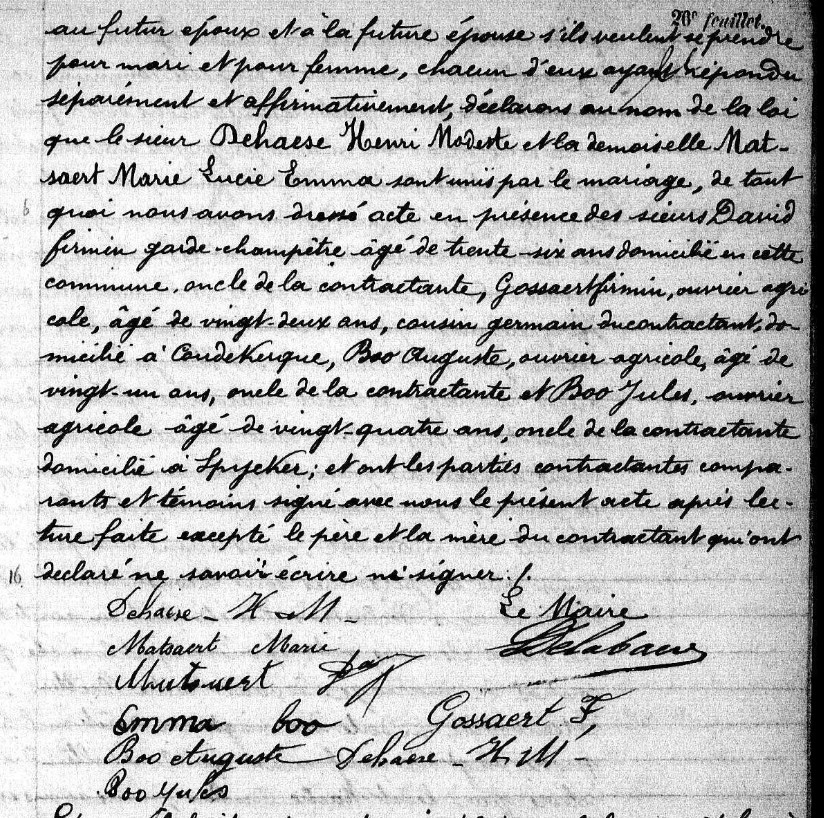 20e feuillet.
au futur époux et à la future épouse s'ils veulent se prendre
pour mari et pour femme, chacun d'eux ayant répondu
séparément et affirmativement, déclarons au nom de la loi
que le sieur Dehaese Henri Modeste et la demoiselle Mat-
saert Marie Lucie Emma sont unis par le mariage, de tout
6 quoi nous avons dressé acte en présence des sieurs David
firmin garde-champêtre âgé de trente-six ans domicilié en cette
commune, oncle de la contractante, Gossaert firmin, ouvrier agri
cole, âgé de vingt-deux ans, cousin germain du contractant, do-
micilié à Coudekerque, Boo Auguste, ouvrier agricole, âgé de
vingt-un ans, oncle de la contractante et Boo Jules, ouvrier
agricole âgé de vingt-quatre ans, oncle de la contractante
domicilié à Spycker; et ont les parties contractantes compa-
rants et témoins signé avec nous le présent acte après lec-
ture faite excepté le père et la mère du contractant qui ont
16 declaré ne savoir écrire ni signer ./.
Dehaese - H - M - Le Maire
Matsaert Marie Delabaere
Matsaert
Emma boo Gossaert F,
Boo Auguste Dehaese - H. M -
Boo Jules